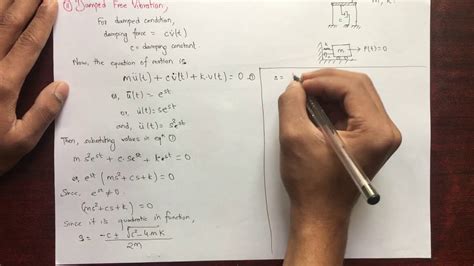 Damped Free Vibration,
For damped condition,
damping force = cu̇(t)
c = damping constant.
Now, the equation of motion is
mü(t) + cu̇(t) + k·u(t) = 0
or, u(t) = e^st
or, u̇(t) = se^st
and, ü(t) = s²e^st
Then, substituting values in eqⁿ ①
m s²e^st + c·se^st + k·e^st = 0
or, e^st (ms² + cs + k) = 0
Since, e^st ≠ 0
(ms² + cs + k) = 0
Since it is quadratic in function,
s = (-c ± √(c² - 4mk)) / 2m
m
P(t) = 0
s =